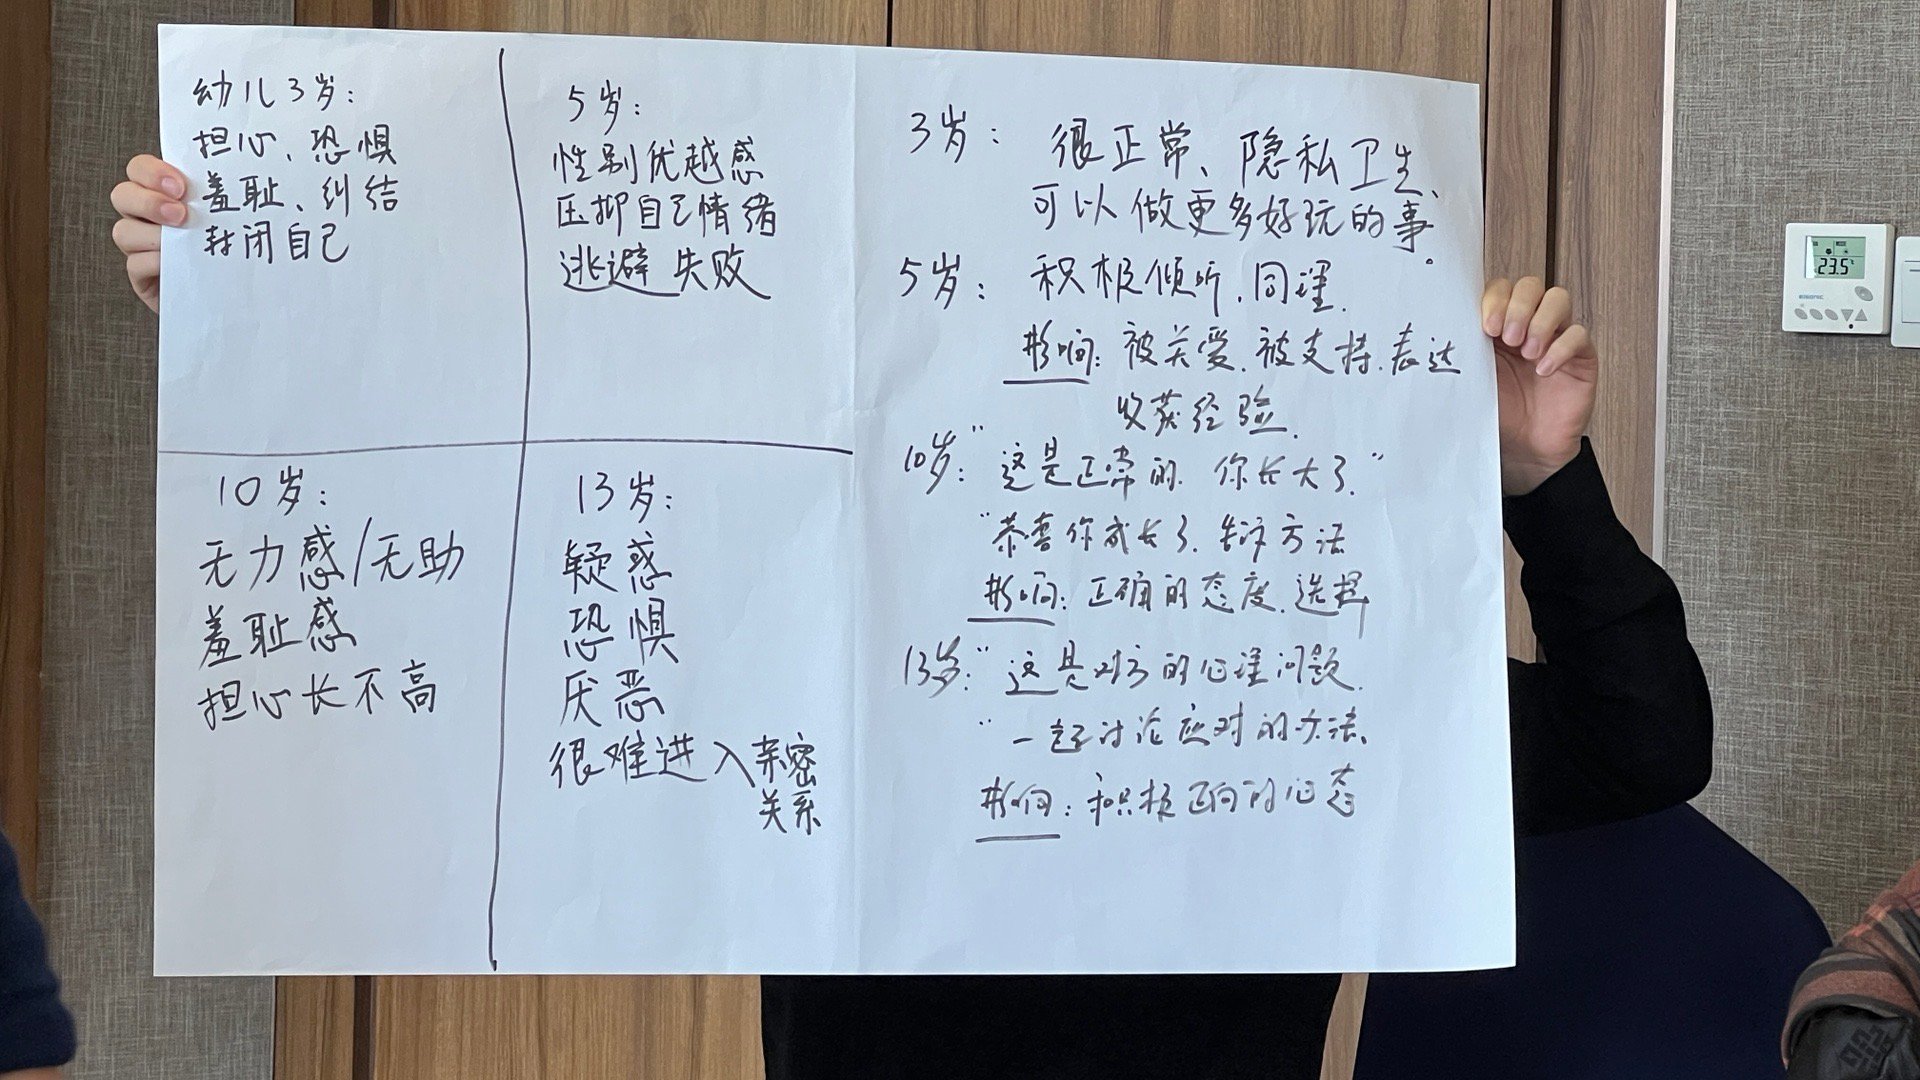 幼儿3岁：
担心、恐惧
羞耻、纠结
封闭自己
5岁：
性别优越感
压抑自己情绪
逃避失败
10岁：
无力感/无助
羞耻感
担心长不高
13岁：
疑惑
恐惧
厌恶
很难进入亲密
关系
3岁：很正常、隐私卫生、
可以做更多好玩的事。
5岁：积极倾听.同理.
影响：被关爱.被支持.表达
收获经验.
10岁："这是正常的.你长大了."
"恭喜你成长了.告诉方法
影响：正确的态度.选择
13岁："这是对方的心理问题.
"一起讨论应对的方法、
影响：积极正向的心态
23.5℃